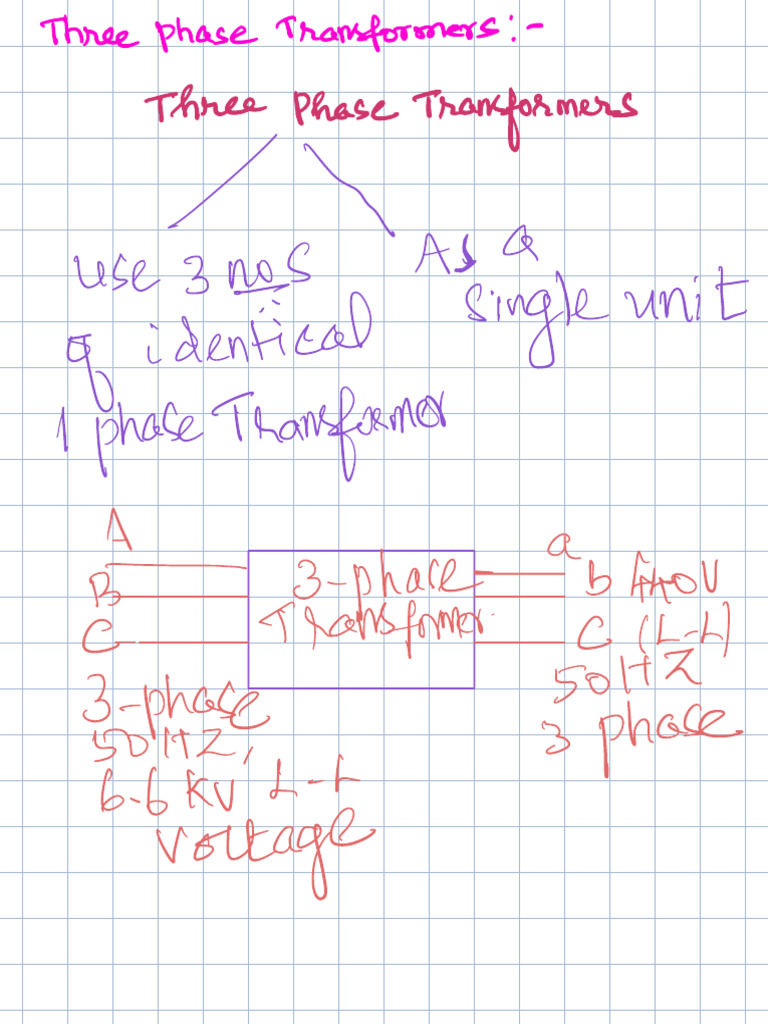 Three phase Transformers:-
Three Phase Transformers
use 3 nos
of identical
1 phase Transformer
As a
single unit
A
B
C
3-phase
Transformer
a
b 440V
C (L-L)
50HZ
3 phase
3-phase
50HZ,
6.6 KV L-L
Voltage